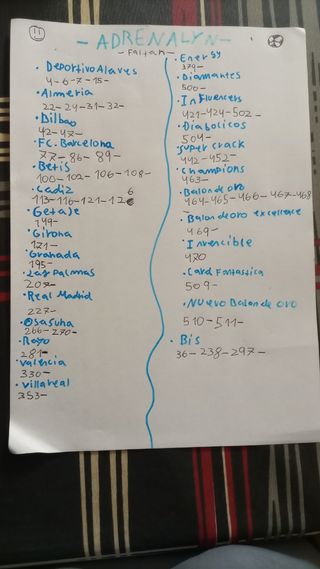 11
- ADRENALYN -
- Faltan -
· Deportivo Alaves
4-6-7-15-
· Almeria
22-24-31-32-
· Bilbao
42-47-
· FC. Barcelona
77-86-89-
· Betis
100-102-106-108-
· Cadiz
113-116-121-126
· Getafe
149-
· Girona
171-
· Granada
195-
· Las Palmas
207-
· Real Madrid
227-
· Osasuna
266-270-
· Rayo
281-
· Valencia
330-
· Villareal
353-
· Energy
379-
· Diamantes
500-
· Influencers
421-424-502-
· Diabolicos
504-
· Super crack
442-452-
· Champions
463-
· Balon de oro
464-465-466-467-468
-
· Balon de oro excellence
469-
· Invencible
470
· Card Fantastica
509-
· Nuevo Balon de oro
510-511-
· Bis
36-238-297-